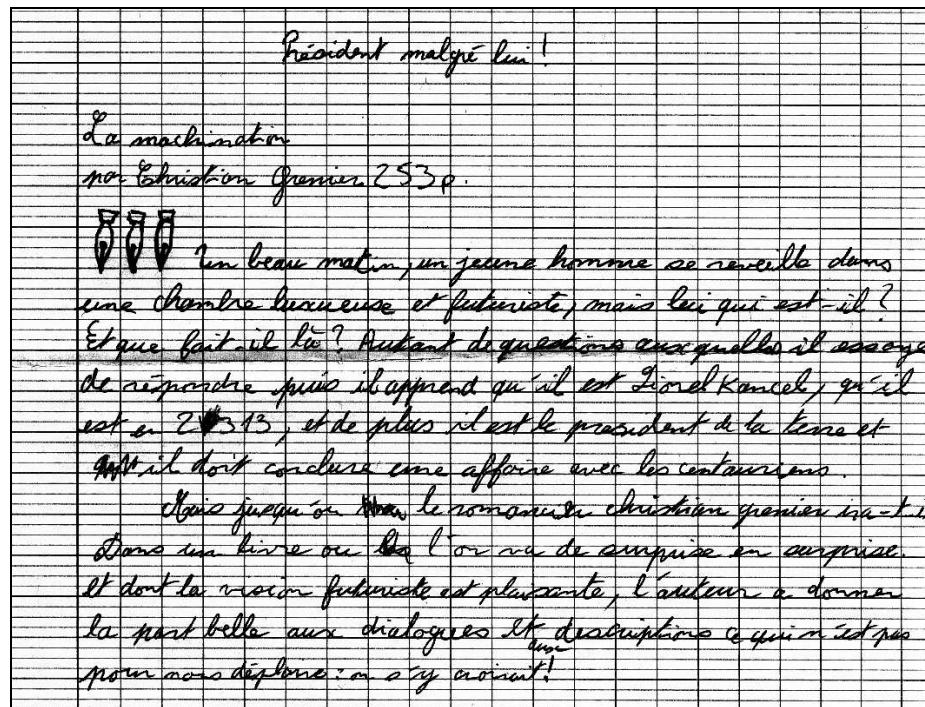 Président malgré lui !
La machination
par Christian Grenier 253p.
Un beau matin, un jeune homme se reveille dans
une chambre luxueuse et futuriste, mais lui qui est-il ?
Et que fait-il là ? Autant de questions auxquelles il essaye
de répondre puis il apprend qu'il est Lionel Kancel, qu'il
est en 2313, et de plus il est le president de la terre et
il doit conclure une affaire avec les centauriens.
Mais jusqu'ou le romancier christian grenier ira-t-i
Dans un livre ou l'on va de surprise en surprise.
et dont la vision futuriste est plaisante, l'auteur a donner
la part belle aux dialogues et aux descriptions ce qui n'est pas
pour nous déplaire : on s'y croirait !